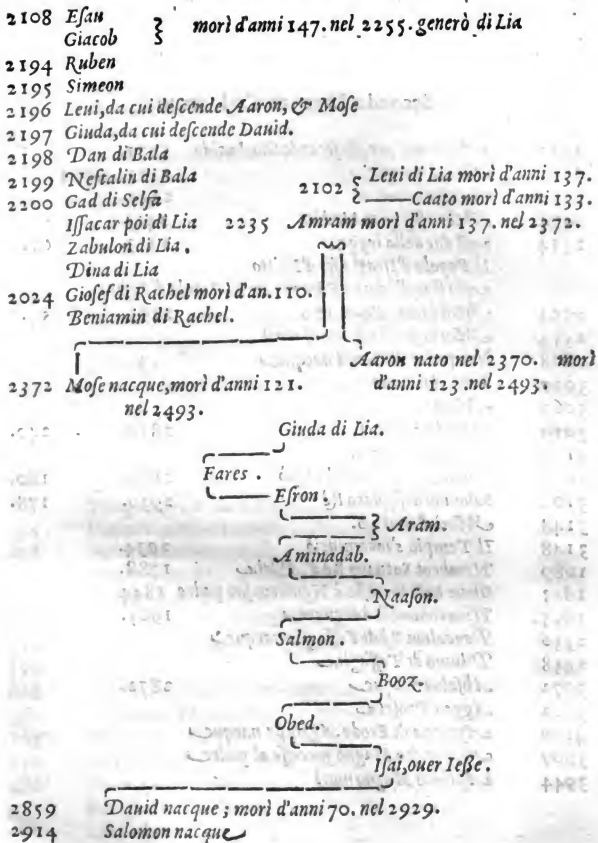 2108 Eſau
Giacob morì d'anni 147. nel 2255. generò di Lia
2194 Ruben
2195 Simeon
2196 Leui, da cui deſcende Aaron, & Moſe
2197 Giuda, da cui deſcende Dauid.
2198 Dan di Bala
2199 Neftalin di Bala
2200 Gad di Selfa
Iſſacar poi di Lia
Zabulon di Lia.
Dina di Lia
2024 Gioſef di Rachel morì d'an. 110.
Beniamin di Rachel.
2102 Leui di Lia morì d'anni 137.
Caato morì d'anni 133.
2235 Amram morì d'anni 137. nel 2372.
Aaron nato nel 2370. morì
d'anni 123. nel 2493.
2372 Moſe nacque, morì d'anni 121.
nel 2493.
Giuda di Lia.
Fares.
Eſron.
Aram.
Aminadab.
Naaſon.
Salmon.
Booz.
Obed.
Iſai, ouer Ieſſe.
2859 Dauid nacque; morì d'anni 70. nel 2929.
2914 Salomon nacque